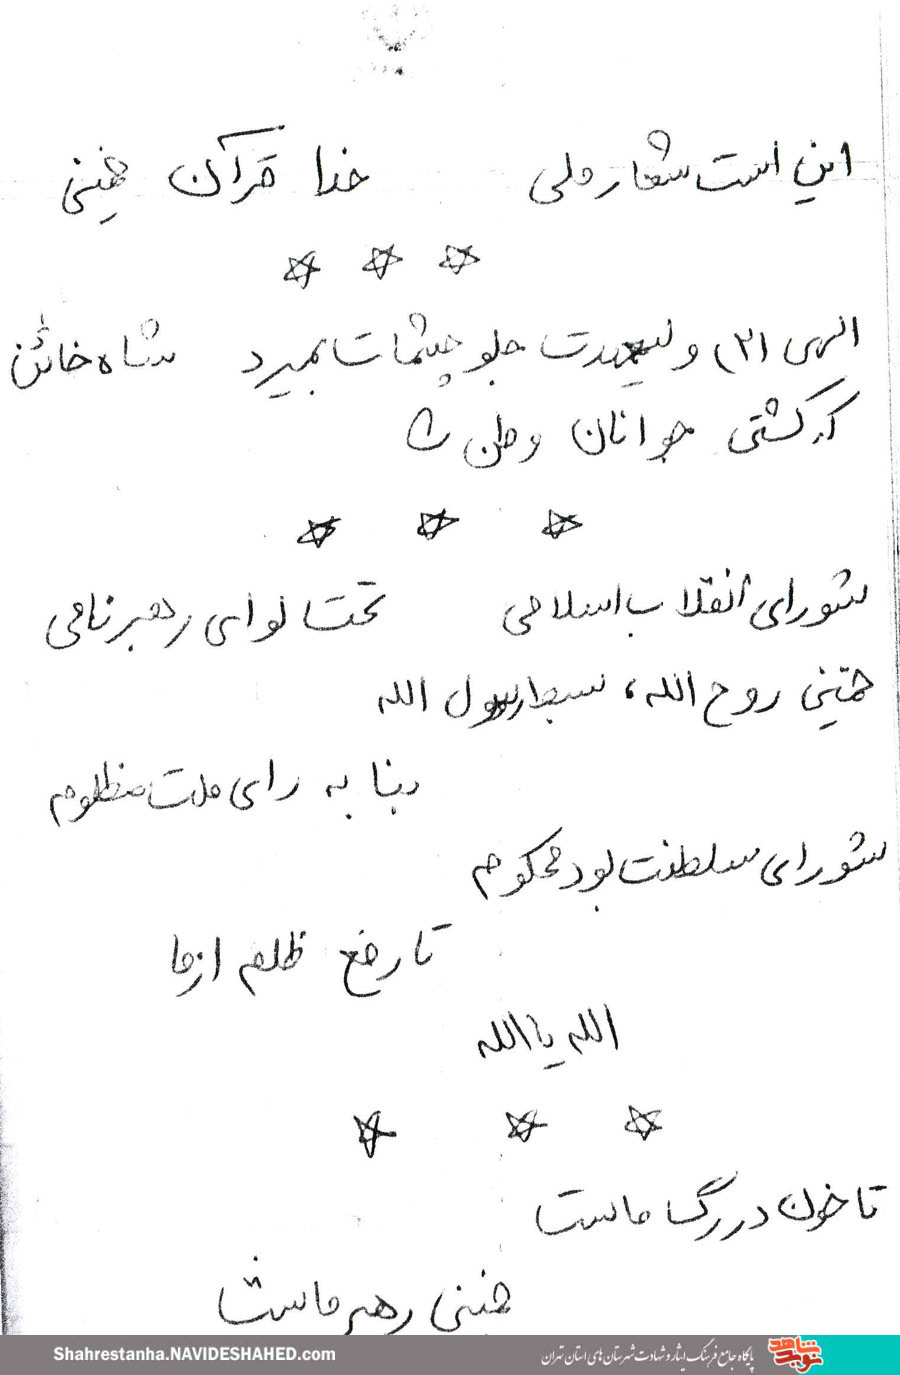 این است شعار ملی خدا قرآن خمینی
الهی (۳) ولیعهدت جلو چشمات بمیرد شاه خائن
که کشتی جوانان وطن
شورای انقلاب اسلامی تحت لوای رهبر نامی
خمینی روح الله، سبط رسول الله
بنا به رای ملت مظلوم
شورای سلطنت بود محکوم
تا رفع ظلم از ما
الله یا الله
تا خون در رگ ماست
خمینی رهبر ماست
Shahrestanha.NAVIDESHAHED.com
پایگاه جامع فرهنگ ایثار و شهادت شهرستان های استان تهران
نوید شاهد